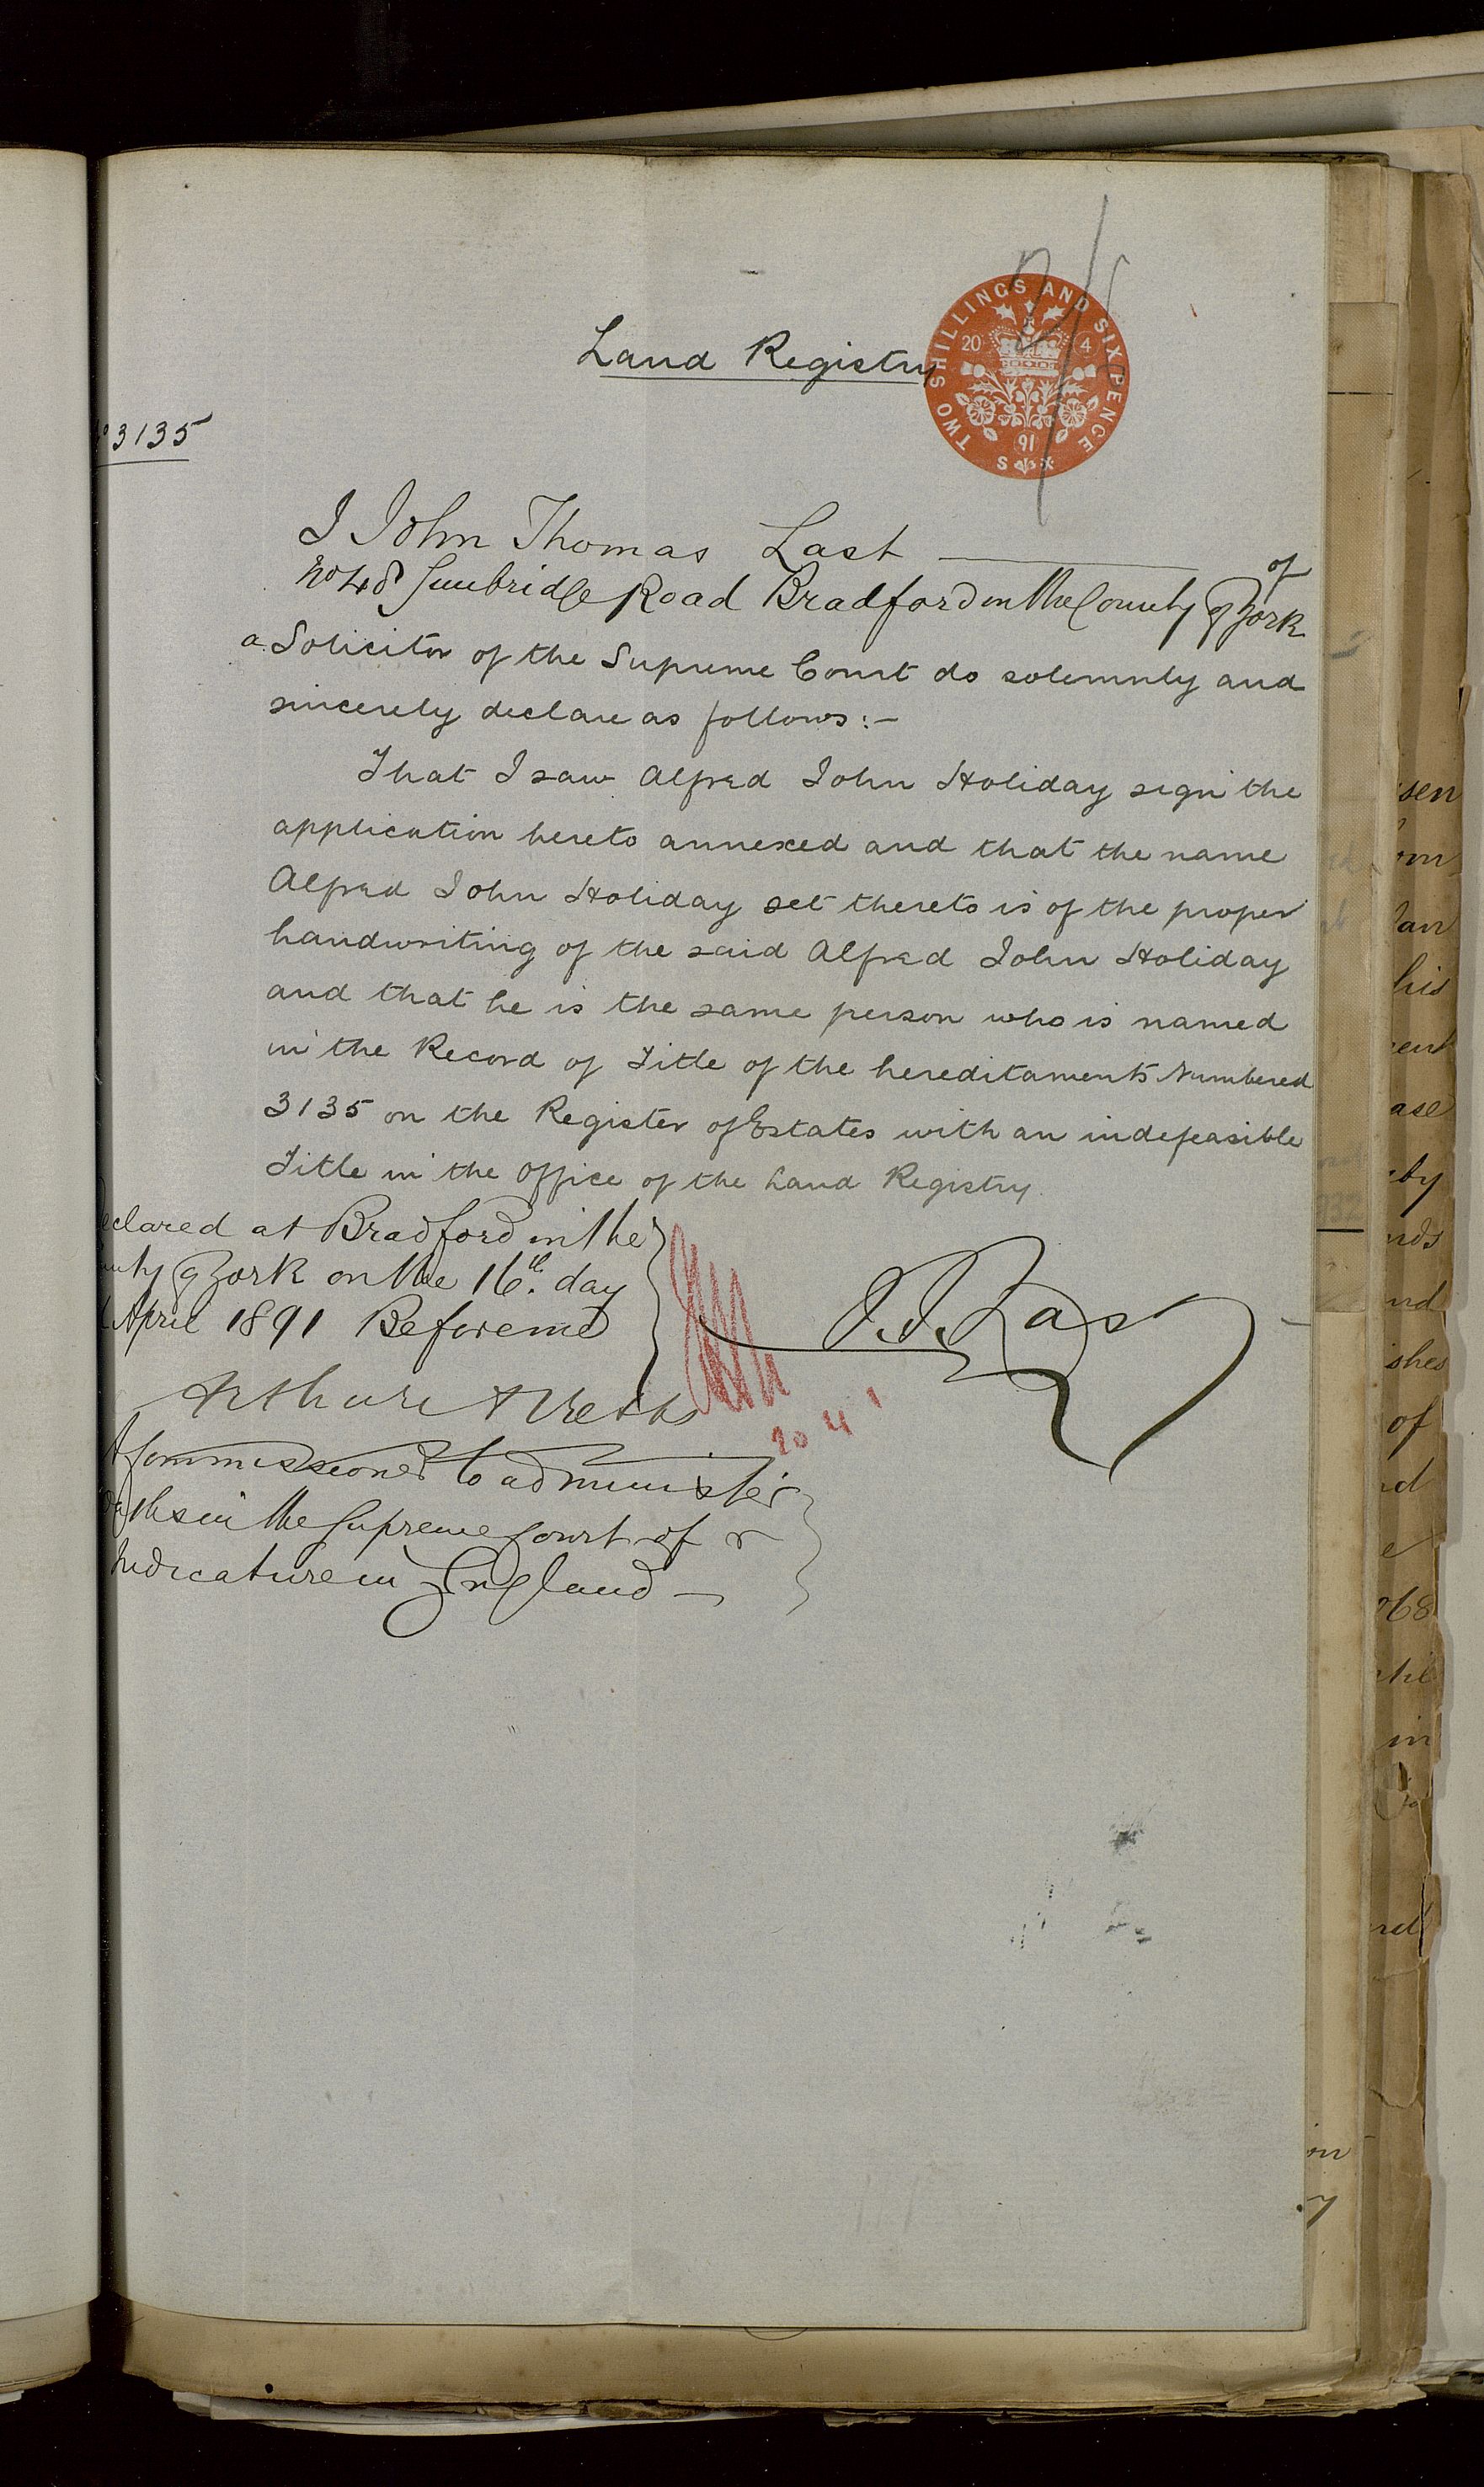 Land Registry
TWO SHILLINGS AND SIXPENCE
20 4
91
S
2/6
3135
I John Thomas Last of
No 48 Sunbridge Road Bradford in the County of York
a Solicitor of the Supreme Court do solemnly and
sincerely declare as follows:-
That I saw Alfred John Holiday sign the
application hereto annexed and that the name
Alfred John Holiday set thereto is of the proper
handwriting of the said Alfred John Holiday
and that he is the same person who is named
in the Record of Title of the hereditaments Numbered
3135 on the Register of Estates with an indefeasible
Title in the Office of the Land Registry.
eclared at Bradford in the
unty of York on the 16th. day
April 1891 Before me
J. T. Last
Arthur A
20 4 1
A Commissioner to administer
Oaths in the Supreme Court of
Judicature in England
sen
his
ase
by
nds
nd
shes
of
in